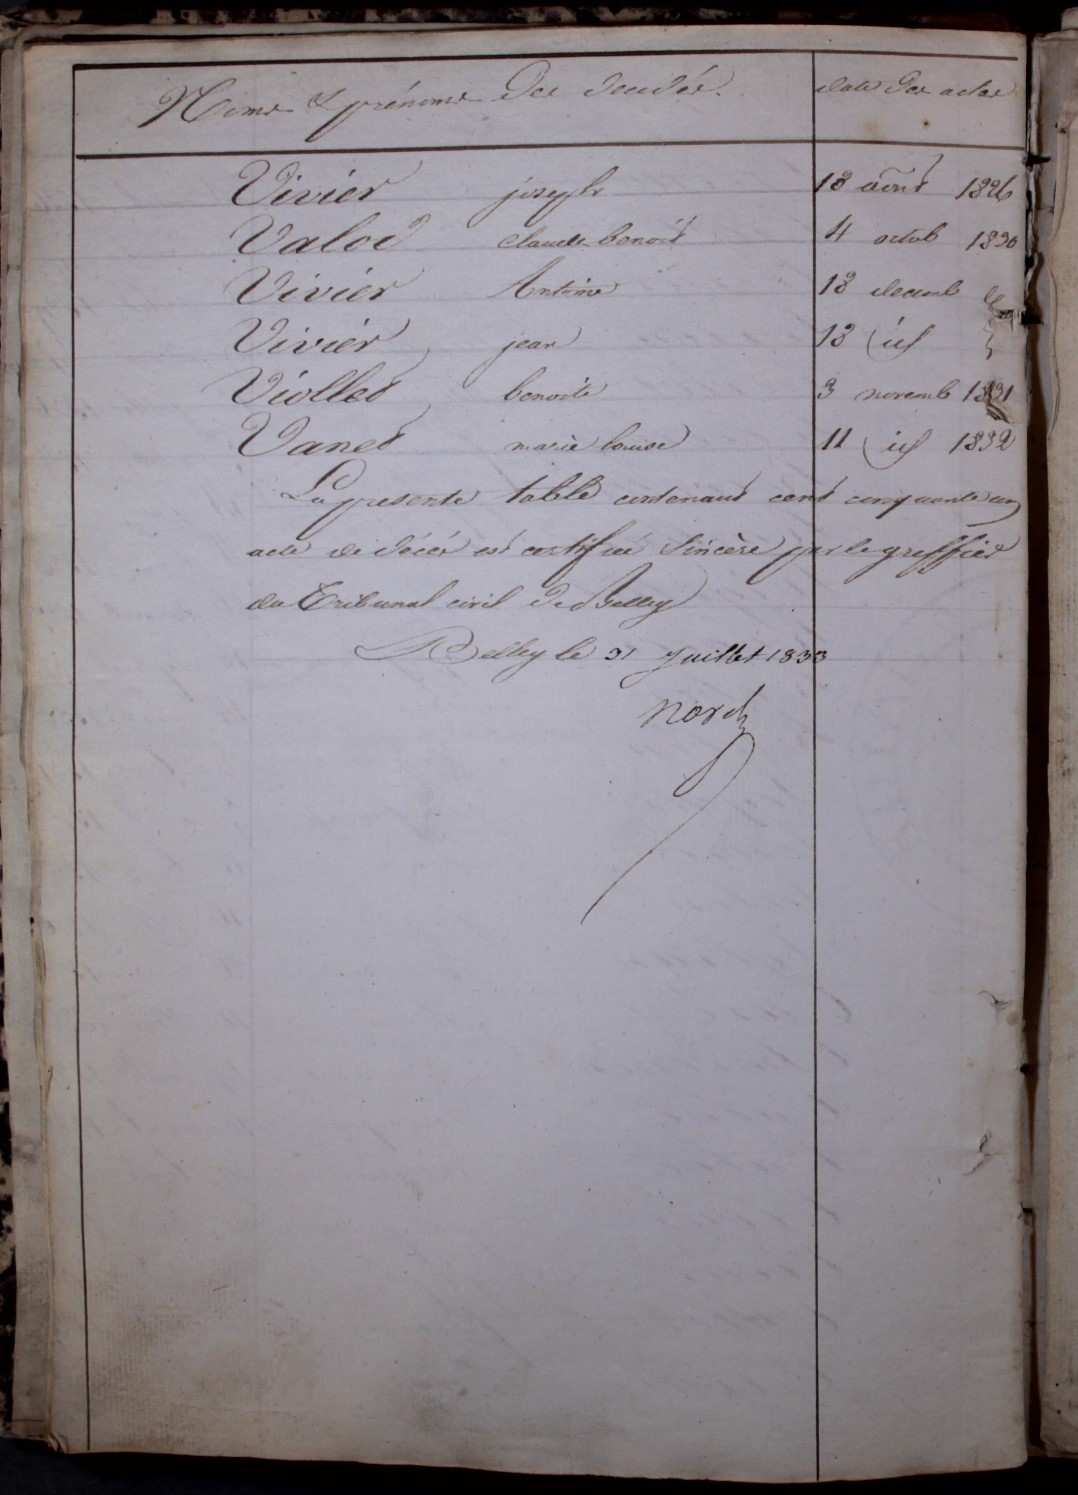 Noms & prénoms des décédés. date des actes
Vivier joseph 18 aout 1826
Valod claude benoit 4 octob 1830
Vivier Antoine 18 decemb id
Vivier jean 18 id
Viollet benoite 3 novemb 1831
Vanet marie louise 11 id 1832
La presente table contenant cent cinquante un
acte de décés est certifiée sincère par le greffier
du Tribunal civil de Belley
Belley le 31 juillet 1833